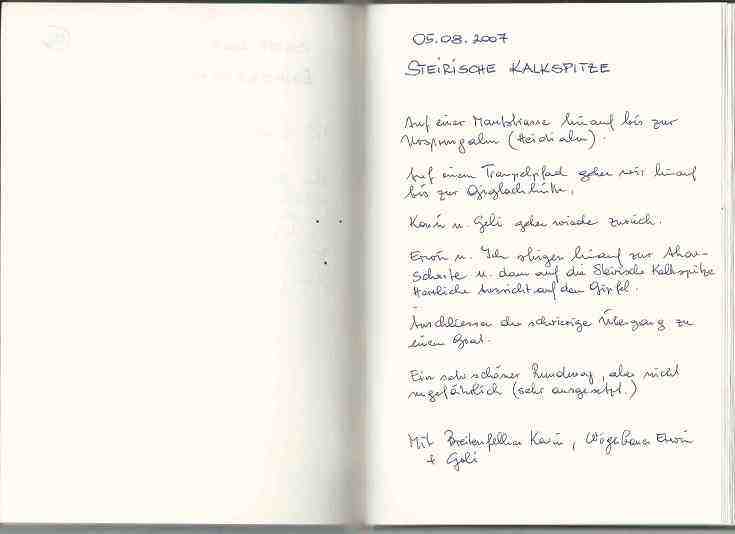 05.08.2007
STEIRISCHE KALKSPITZE
Auf einer Mautstrasse hinauf bis zur
Ursprungalm (Heidialm).
Auf einem Trampelpfad gehen wir hinauf
bis zur Giglachhütte.
Karin u. Geli gehen wieder zurück.
Erwin u. Ich steigen hinauf zur Ahar-
Scharte u. dann auf die Steirische Kalkspitze
Herrliche Aussicht auf den Gipfel.
Anschliessen der schwierige Übergang zu
einen Grat.
Ein sehr schöner Rundweg, aber nicht
ungefährlich (sehr ausgesetzt.)
Mit Breitenfellner Karin, Erwin
+ Geli